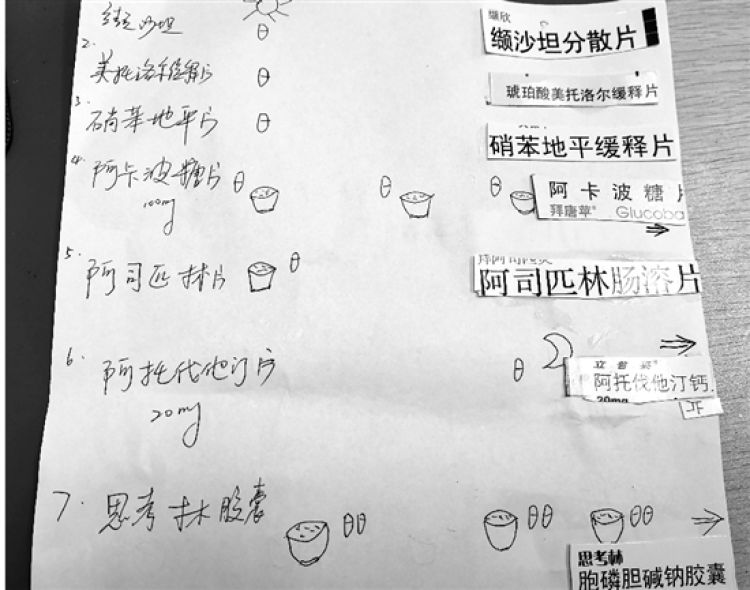 缬沙坦
缬欣
缬沙坦分散片
2.
美托洛尔缓释片
琥珀酸美托洛尔缓释片
3.
硝苯地平片
硝苯地平缓释片
4.
阿卡波糖片
100mg
阿卡波糖片
拜唐苹® Glucoba
5.
阿司匹林片
阿司匹林肠溶片
6.
阿托伐他汀片
20mg
立普妥®
阿托伐他汀钙
20mg
7.
思考林胶囊
思考林
胞磷胆碱钠胶囊